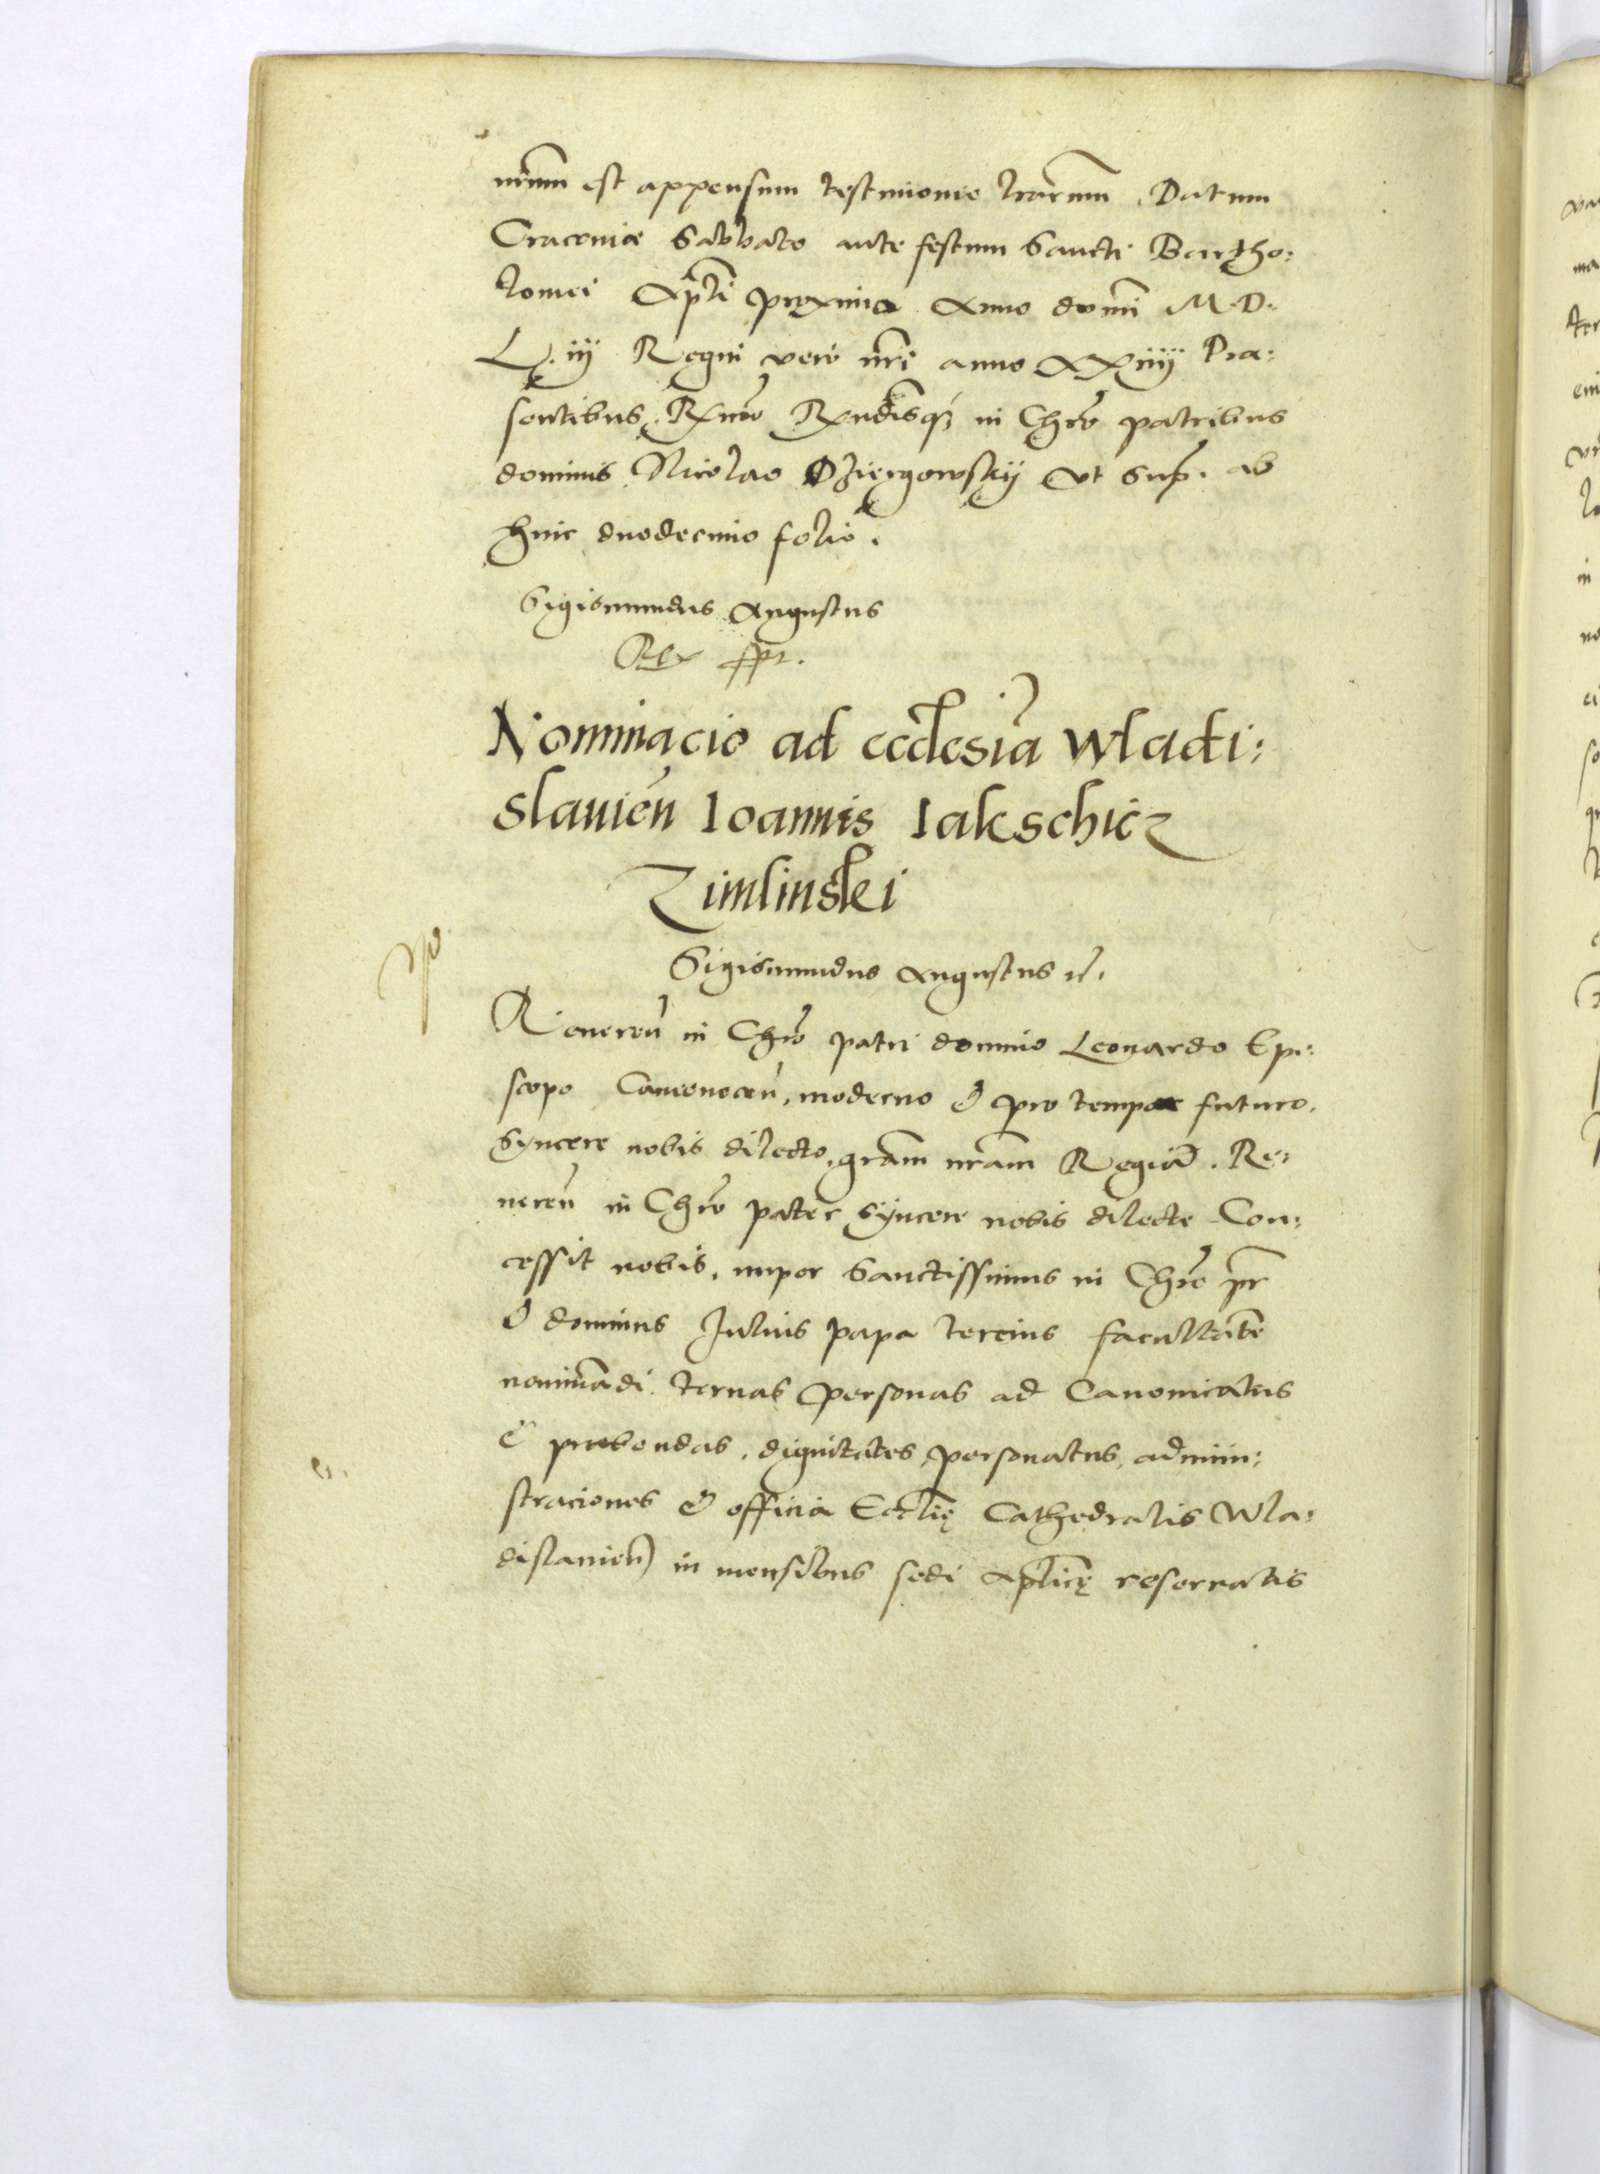 nrūm est appensum testimonio lrarum. Datum
Cracoviæ Sabbato ante festum Sancti Bartho:
lomei Apłi proximo Anno domī M.D.
L.iij Regni vero nrī anno XXiiij Præ:
sentibus Rxmo Rxndisq; in Chro patribus
dominis Nicolao Dziergowskij vt sup. ab
hinc duodecimo folio.
Sigismundus Augustus
Rex sspt.
Nominacio ad ecclesiā Wladi:
slauień Ioannis Iakschicz
Zimlinskei
Sigismundus Augustus rc.
Reuereń in Chro patri domino Leonardo Epi:
scopo Cameneceń, moderno & pro tempore futuro.
Syncere nobis dilecto, gram nram Regiā. Re:
uereń in Chro pater syncere nobis dilecte. Con:
cessit nobis, nuper Sanctissimus in Chro pr
& dominus Iulius papa tercius facultatē
nominādi ternas personas ad Canonicatus
& præbendas, dignitates, personatus, admini:
straciones & officia Ecclię Cathedralis Wla:
dislauień in mensibus sedi Aplicę reservatis